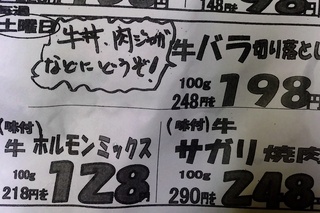 148を 98円
土曜日
牛丼、肉じゃが
などにどうぞ!
牛バラ切り落とし
100g
248円を 198円
(味付)
牛ホルモンミックス
100g
218円を 128円
(味付)牛
サガリ焼肉
100g
290円を 248